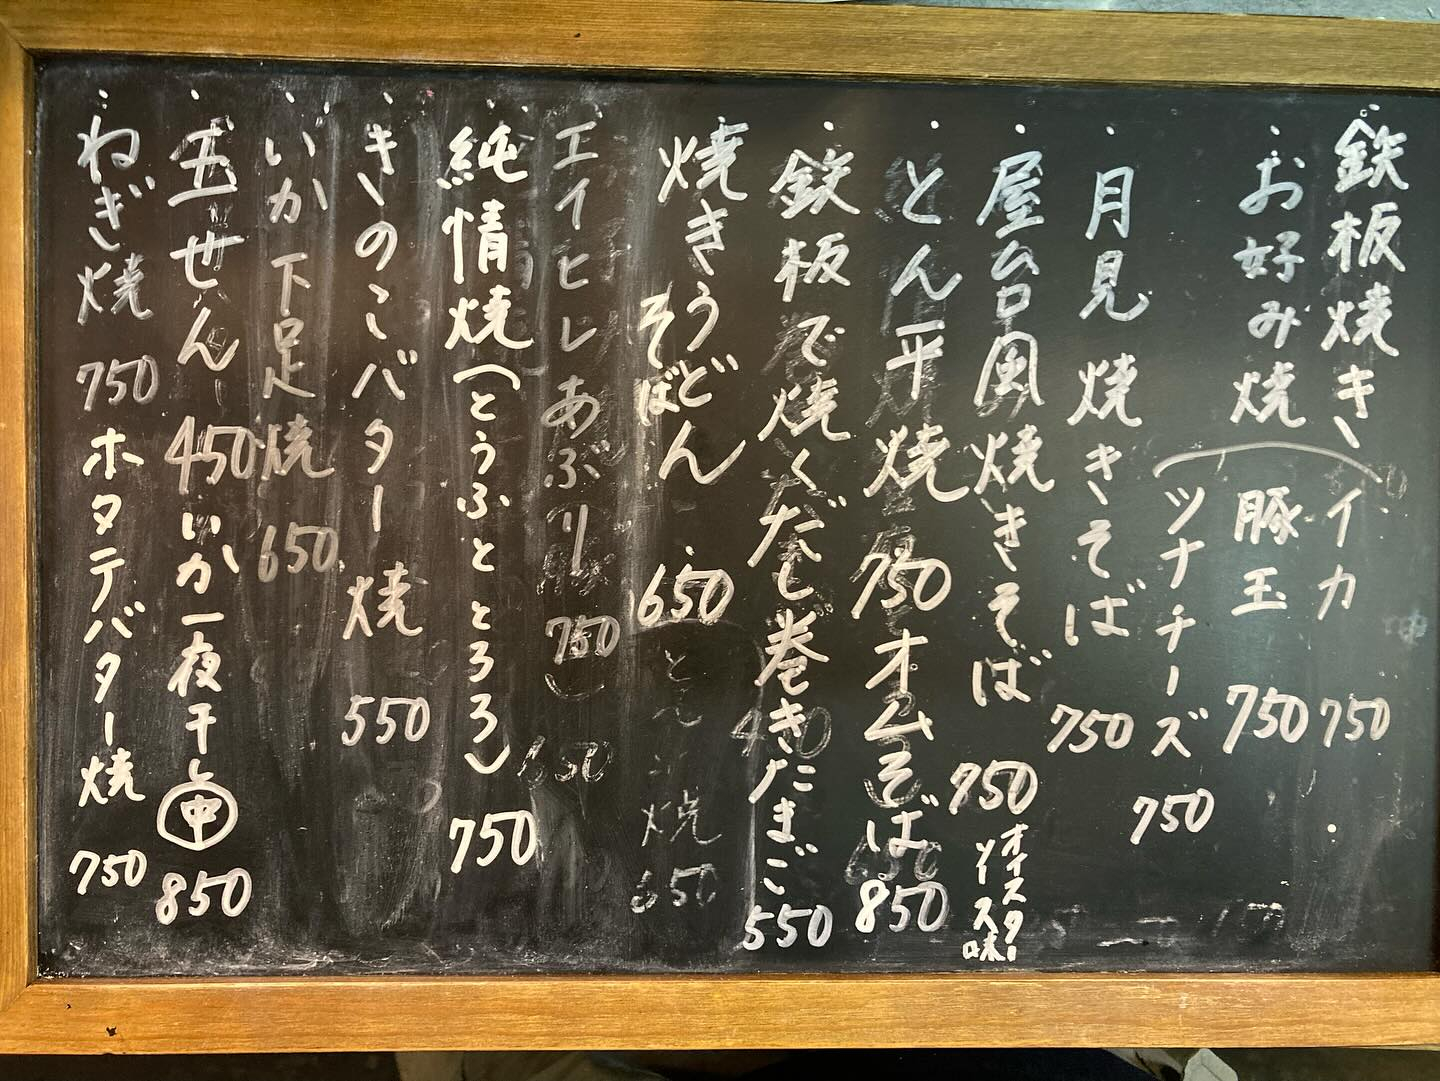 鉄板焼き
お好み焼
イカ 750
豚玉 750
ツナチーズ 750
月見焼きそば 750
屋台風焼きそば 750
オイスターソース味
とん平焼 750
オムそば 850
鉄板で焼くだし巻きたまご 550
焼きうどん
そば
650
エイヒレあぶり 750
650
焼 650
純情焼(とうふととろろ) 750
きのこバター焼 550
いか下足焼 650
玉せん 450
いか一夜干し 中 850
ねぎ焼 750
ホタテバター焼 750